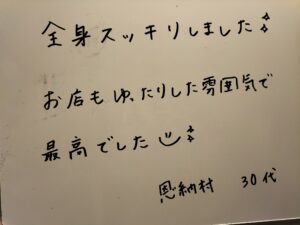 全身スッキリしました
お店もゆったりした雰囲気で
最高でした
恩納村 30代